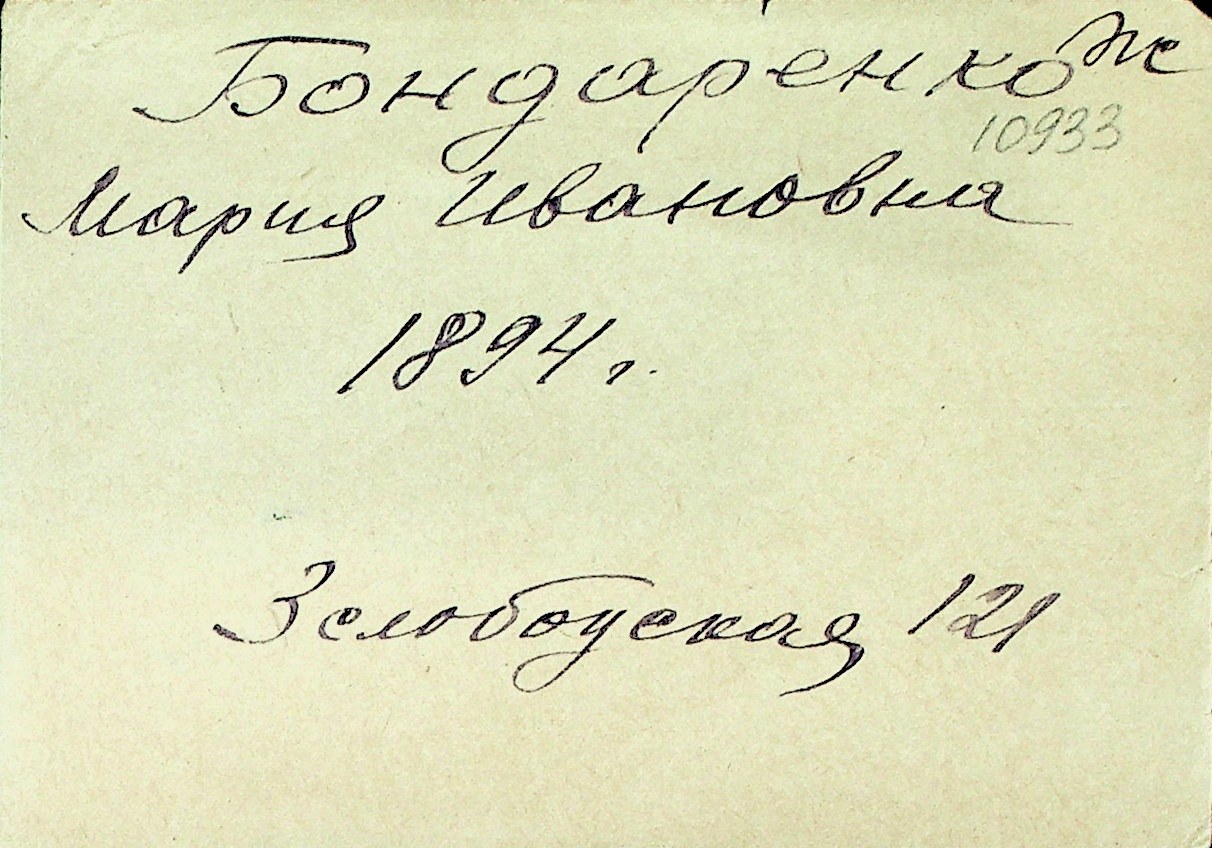 Бондаренко ж
10933
Мария Ивановна
1894 г.
3 слободская 121